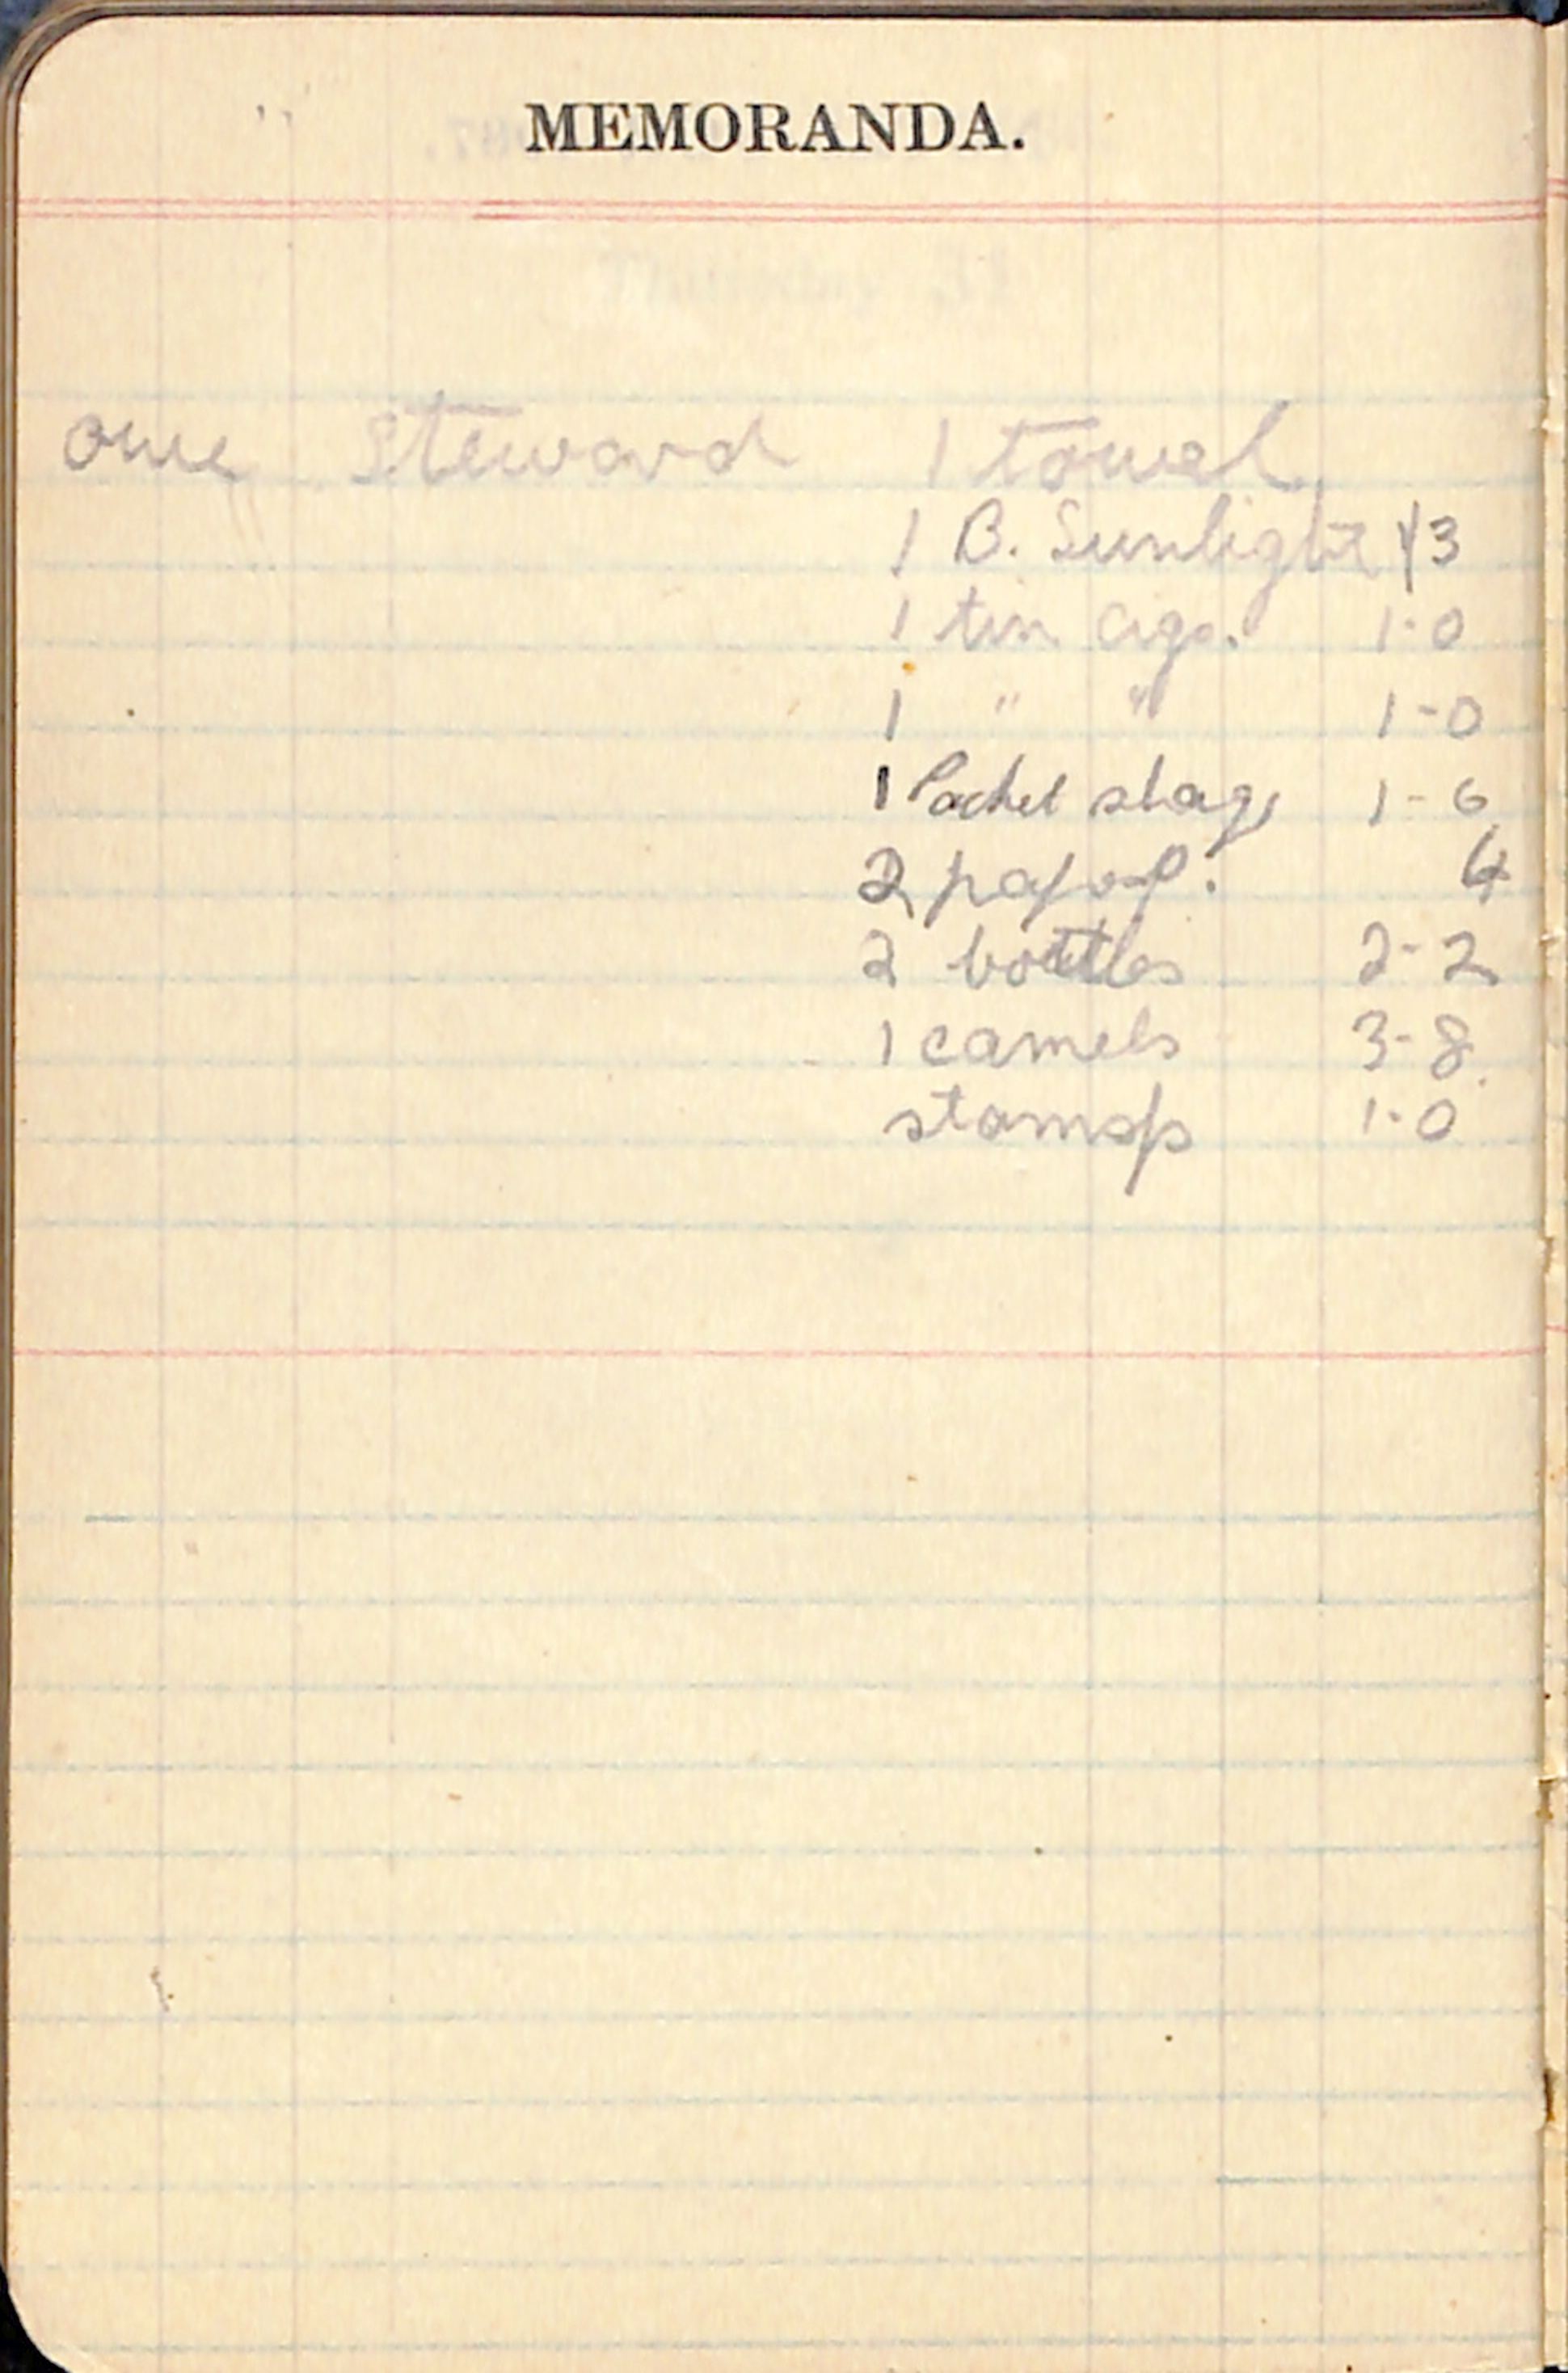 MEMORANDA.
owe Steward 1 towel
1 B. Sunlight 3
1 tin cigs. 1-0
1 " " 1-0
1 Packet shag 1-6
2
2 bottles 2-2
1 camels 3-8
stamps 1-0